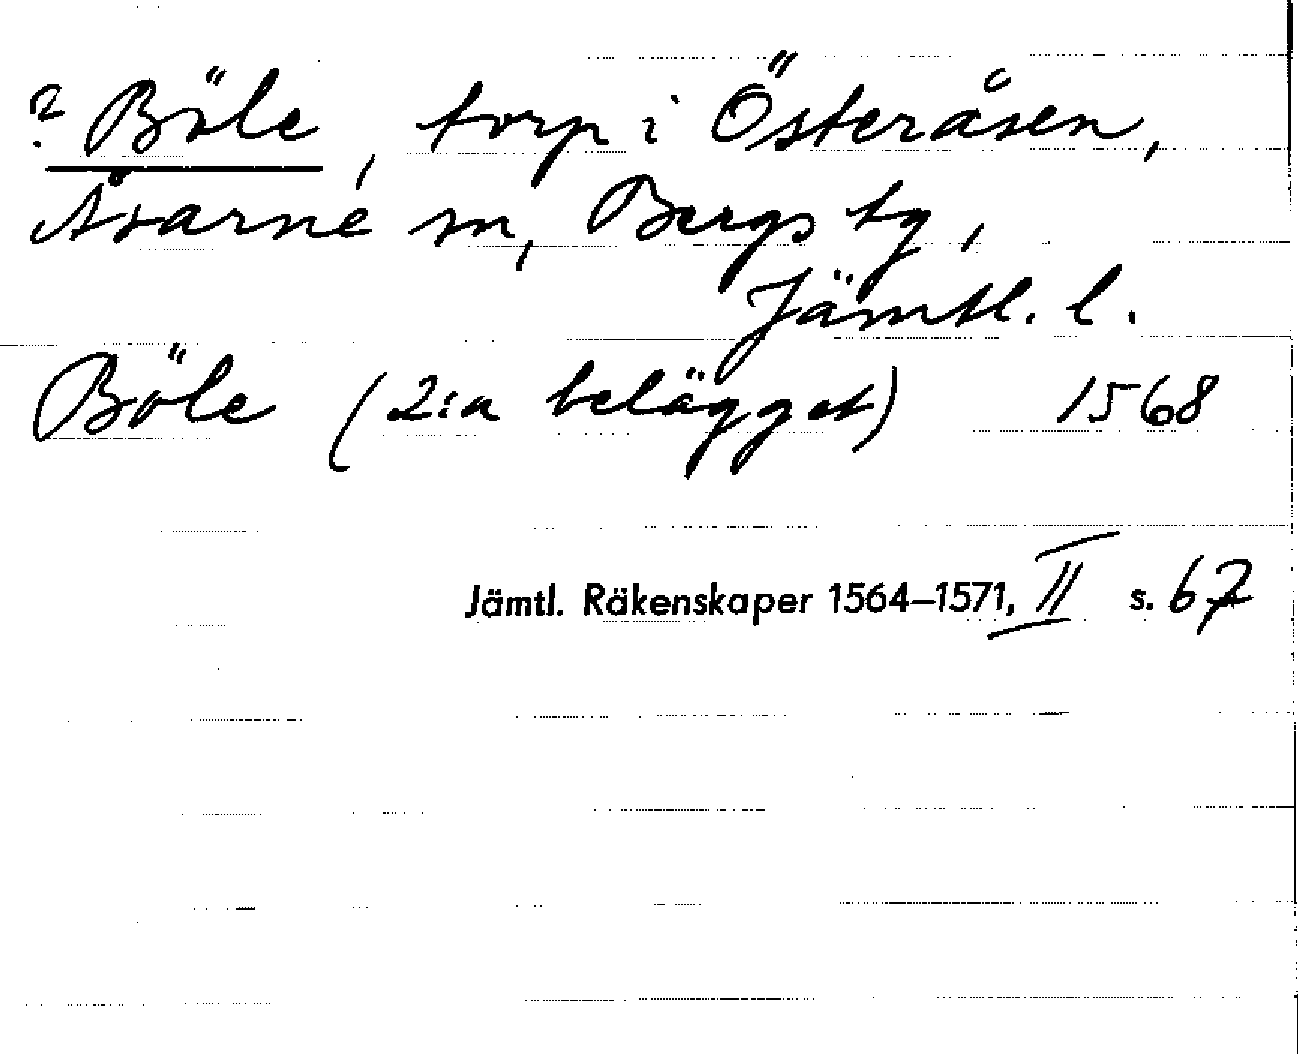 ? Böle, torp i Österåsen,
Åsarne sn, Bergs tg,
Jämtl. l.
Böle (2:a belägget) 1568
Jämtl. Räkenskaper 1564–1571, II s. 67